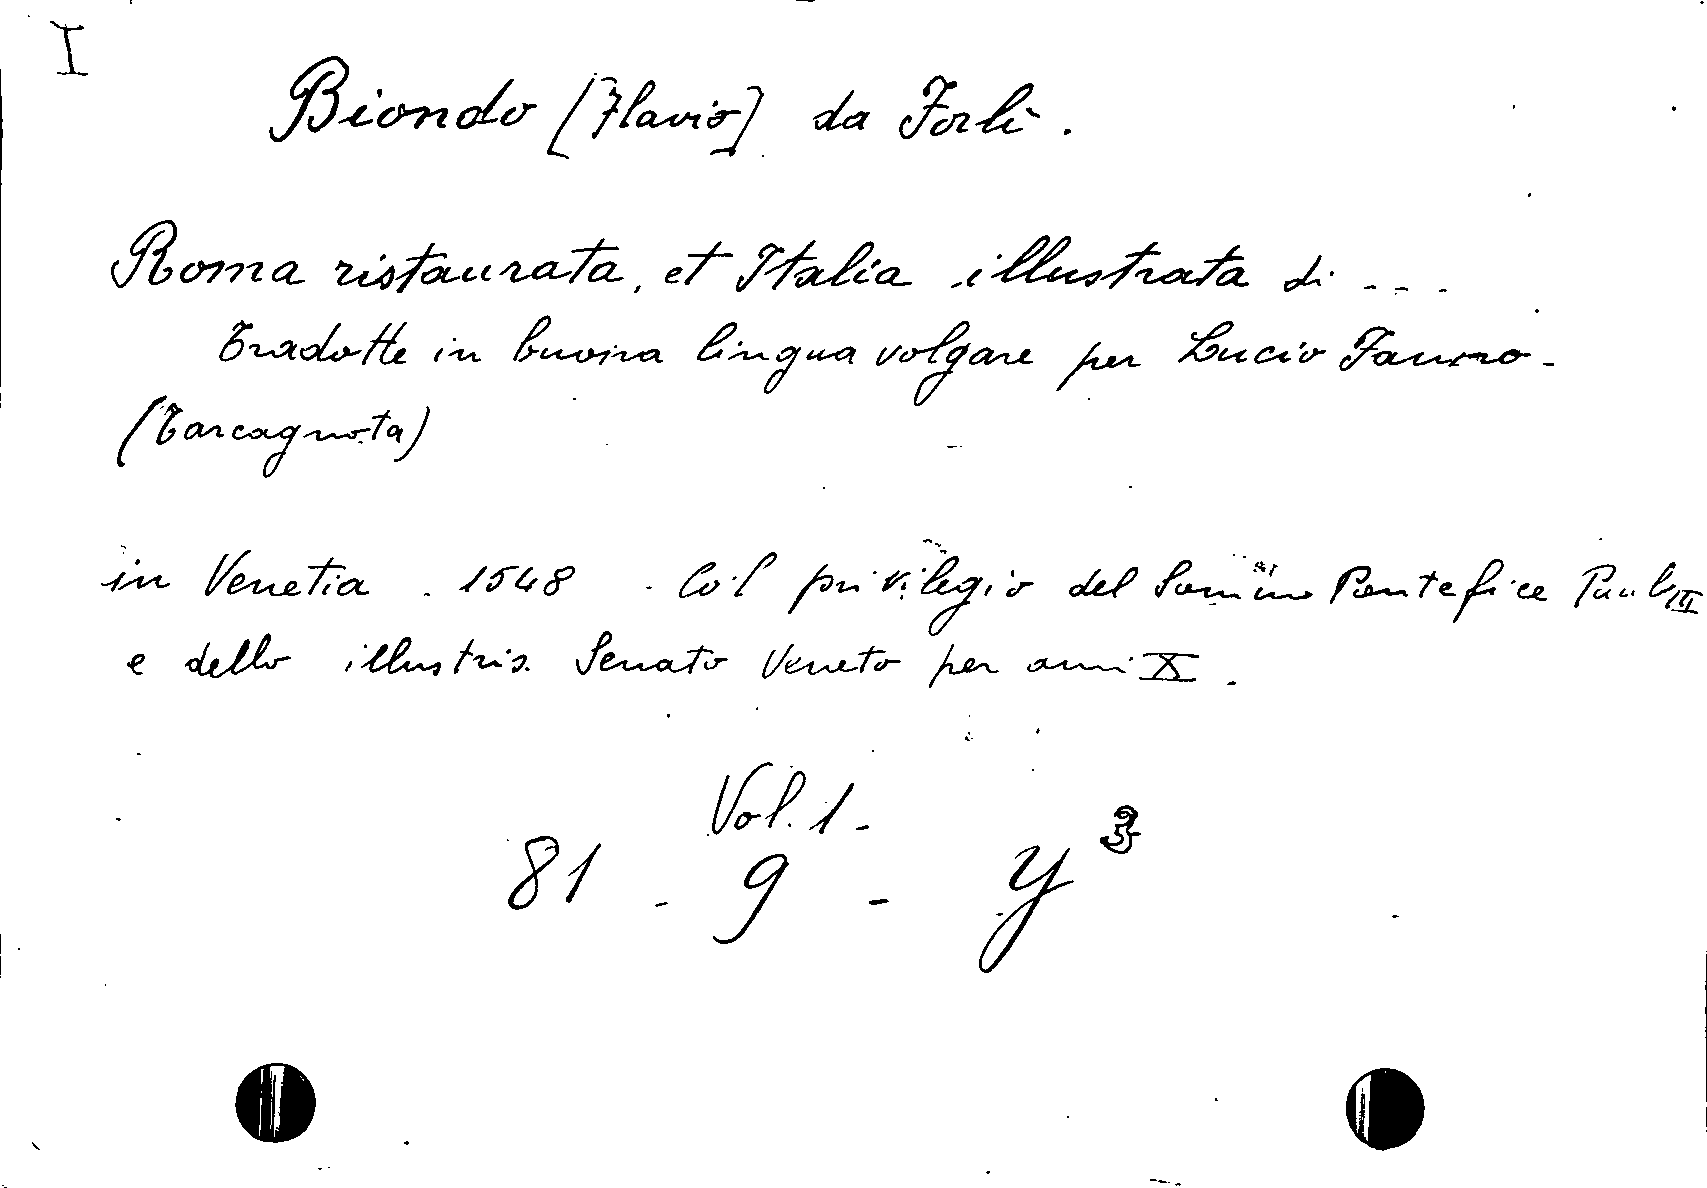 I
Biondo [Flavio] da Forlì.
Roma ristaurata, et Italia illustrata di ...
Tradotte in buona lingua volgare per Lucio Fauno -
(Tarcagnota)
in Venetia. 1548 Col privilegio del Sommo Pontefice Paulo III
e dello illustris. Senato Veneto per anni X.
Vol. 1 -
81 - 9 - y 3